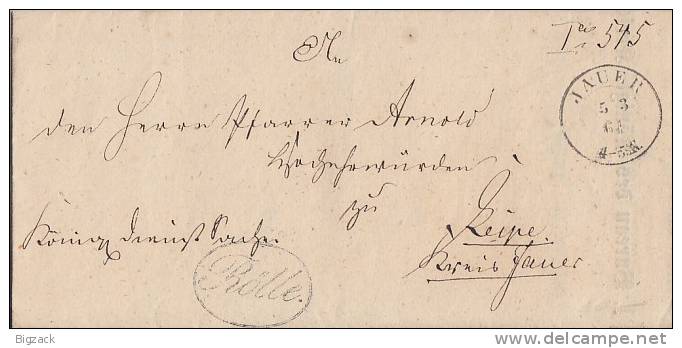 575
An
JAUER
5 3
64
4-5N.
den Herrn Pfarrer Arnold
Hochehrwürden
zu
Leipe.
Königl Dienst Sache.
Kreis Jauer
Rölle.
Bigzack
www.delcampe.net